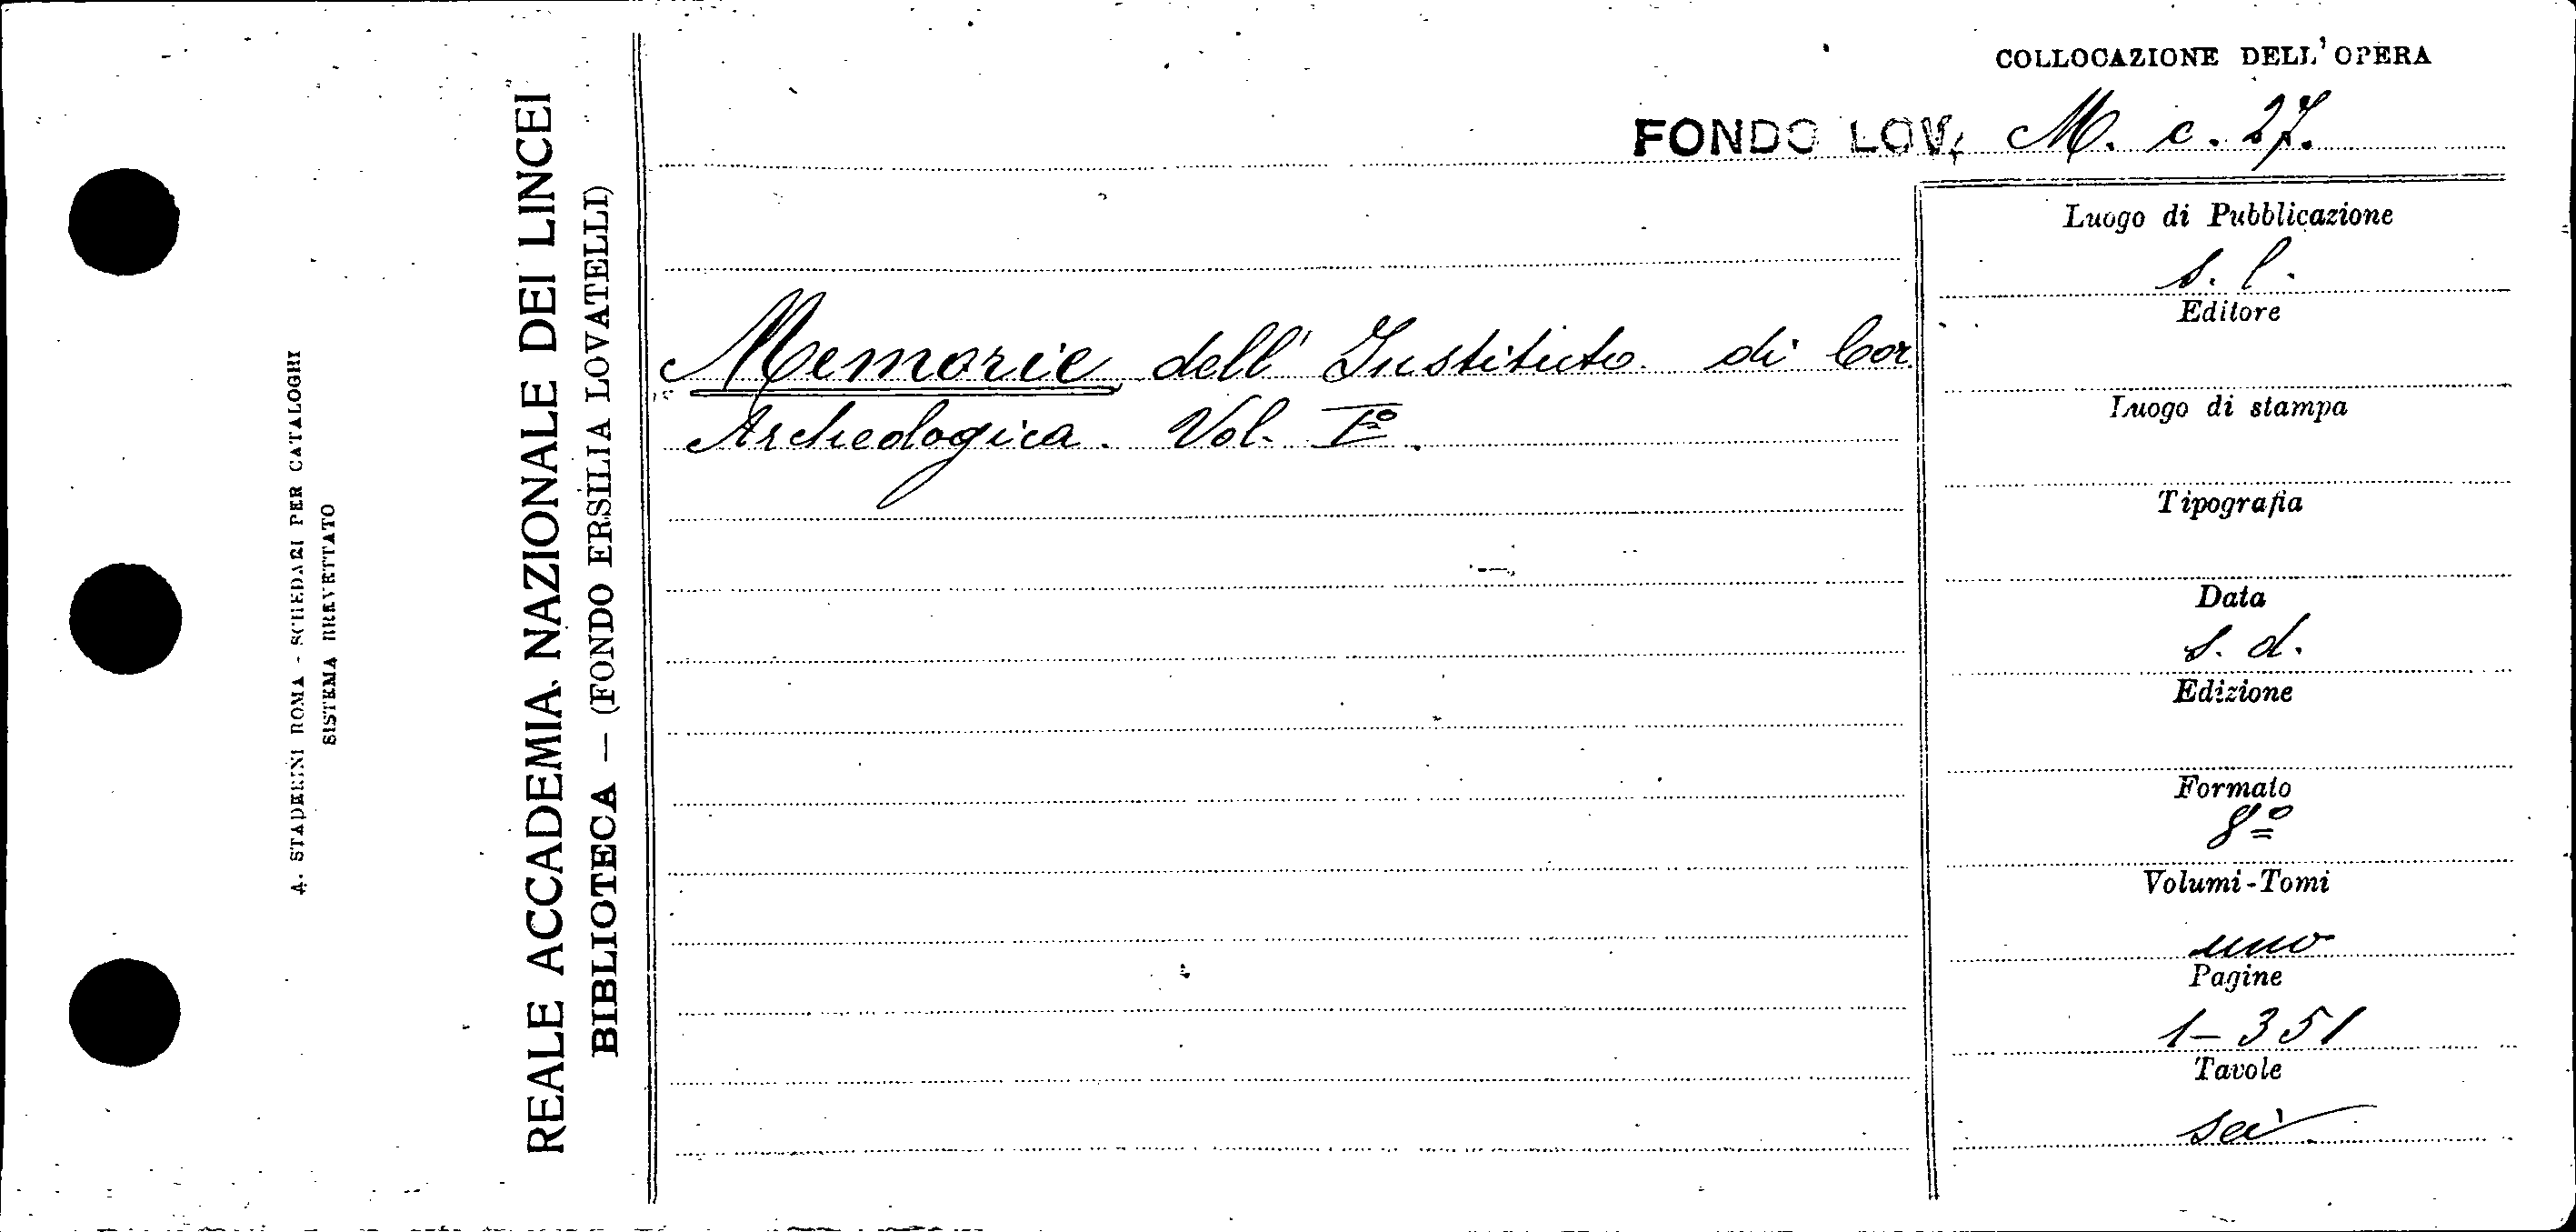 COLLOCAZIONE DELL'OPERA
FONDO LOV. M. c. 27.
Memorie dell' Instituto di Cor.
Archeologica. Vol. Iº.
Luogo di Pubblicazione
s. l.
Editore
Luogo di stampa
Tipografia
Data
s. d.
Edizione
Formato
8º
Volumi-Tomi
uno
Pagine
1-351
Tavole
sei
REALE ACCADEMIA NAZIONALE DEI LINCEI
BIBLIOTECA — (FONDO ERSILIA LOVATELLI)
A. STADERINI ROMA - SCHEDARI PER CATALOGHI
SISTEMA BREVETTATO